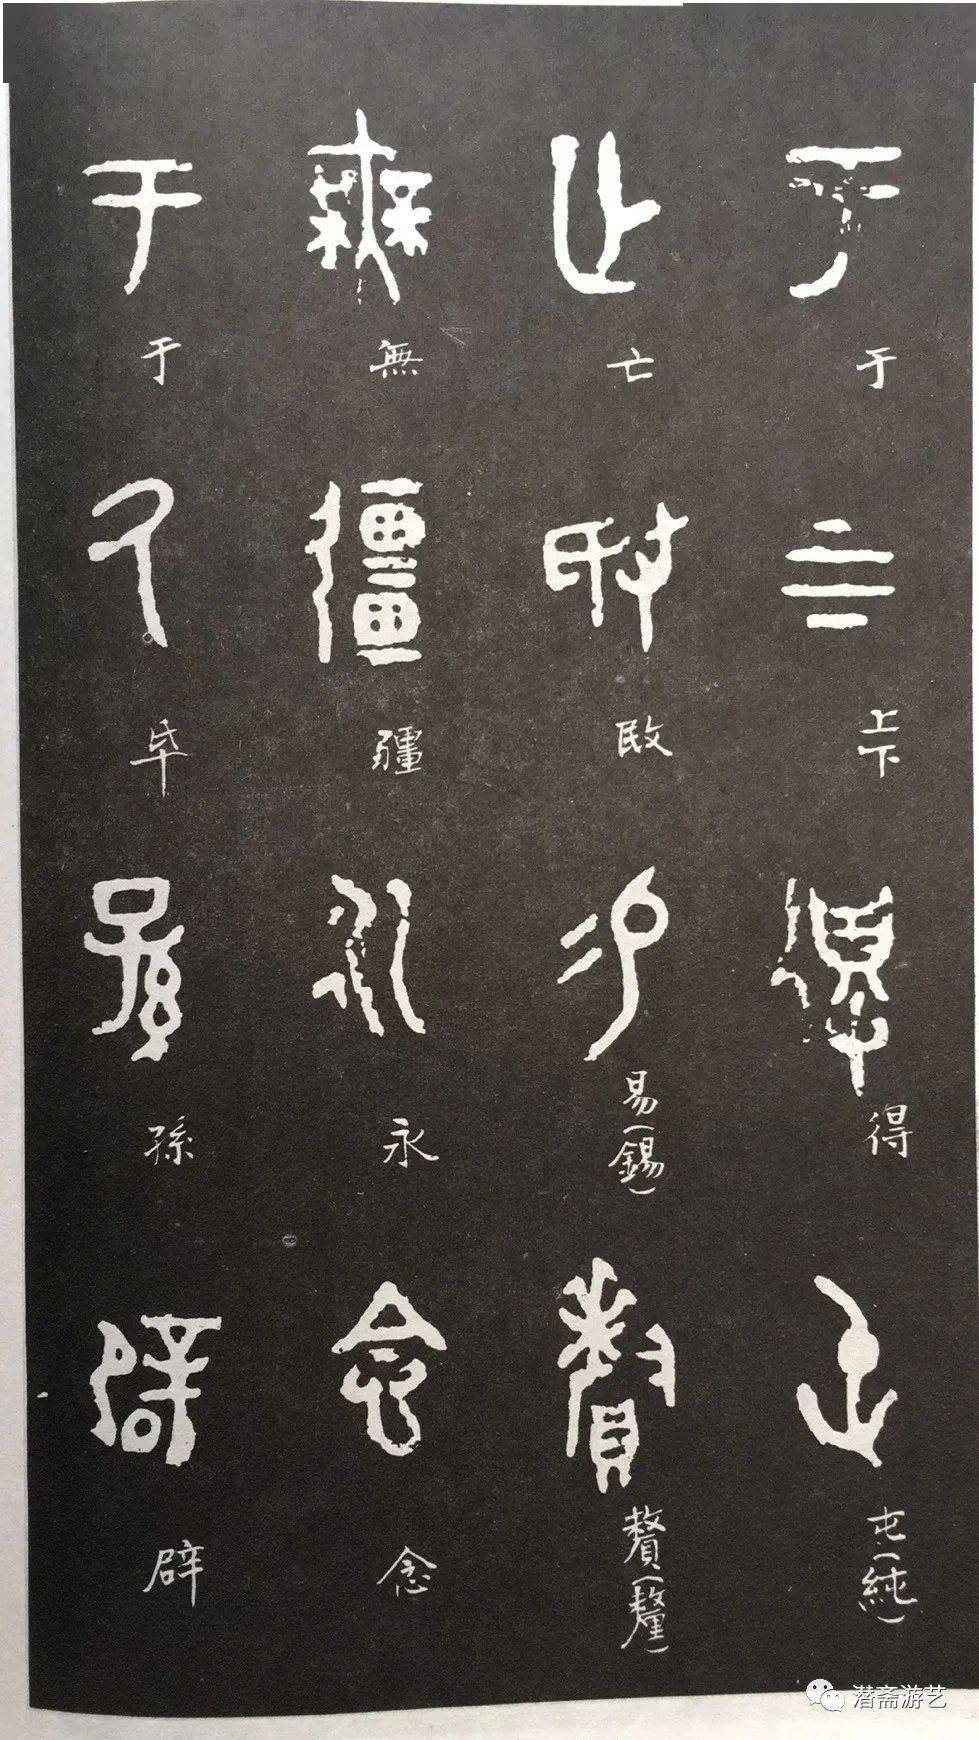 于 上下 得 屯(純)
亡 敃 易(錫) (釐)
無 疆 永 念
于 氒 孫 辟
潜斋游艺